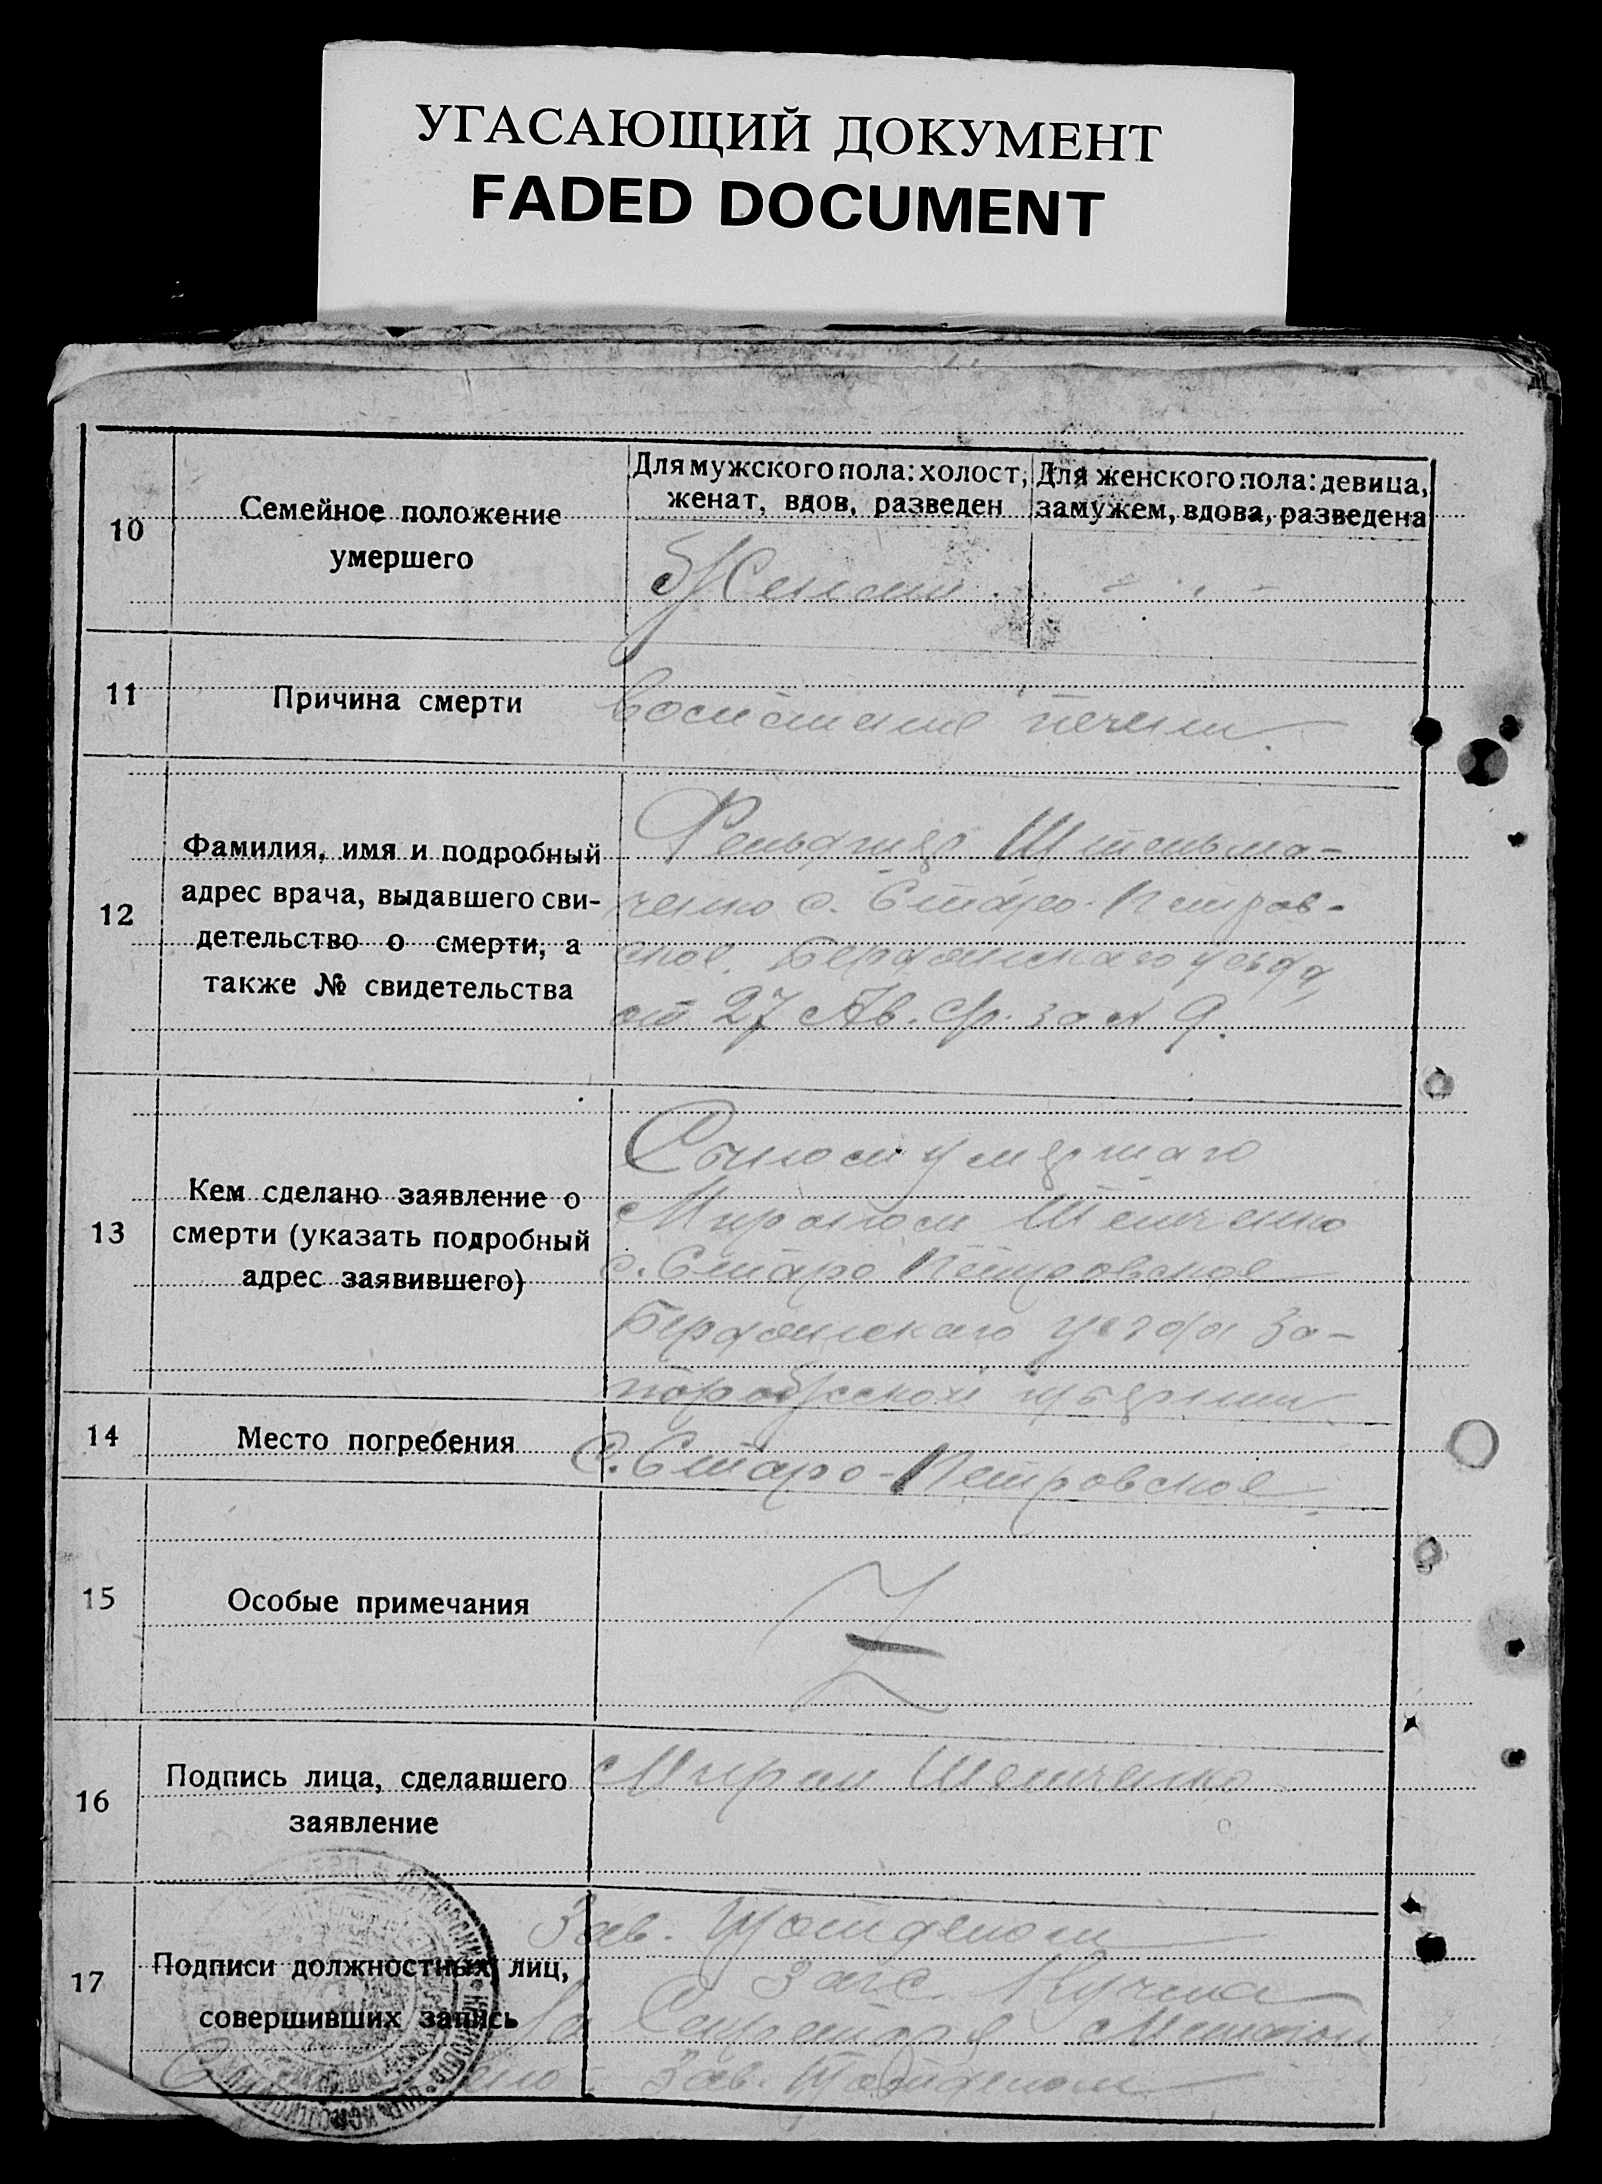 УГАСАЮЩИЙ ДОКУМЕНТ
FADED DOCUMENT
10
Семейное положение
умершего
Для мужского пола: холост,
женат, вдов, разведен
Для женского пола: девица,
замужем, вдова, разведена
Женат
11
Причина смерти
Воспаление печени.
12
Фамилия, имя и подробный
адрес врача, выдавшего сви-
детельство о смерти, а
также № свидетельства
с. Старо-Петров-
ское. Бердянскаго уезда,
от 27 за № 9.
13
Кем сделано заявление о
смерти (указать подробный
адрес заявившего)
Сыном умершаго
Мироном
с. Старо Петровское
Бердянскаго уезда За-
порожской губернии
14
Место погребения
С. Старо-Петровское
15
Особые примечания
Z
16
Подпись лица, сделавшего
заявление
Мирон
17
Подписи должностных лиц,
совершивших запись
Зав.
Загс
Зав.